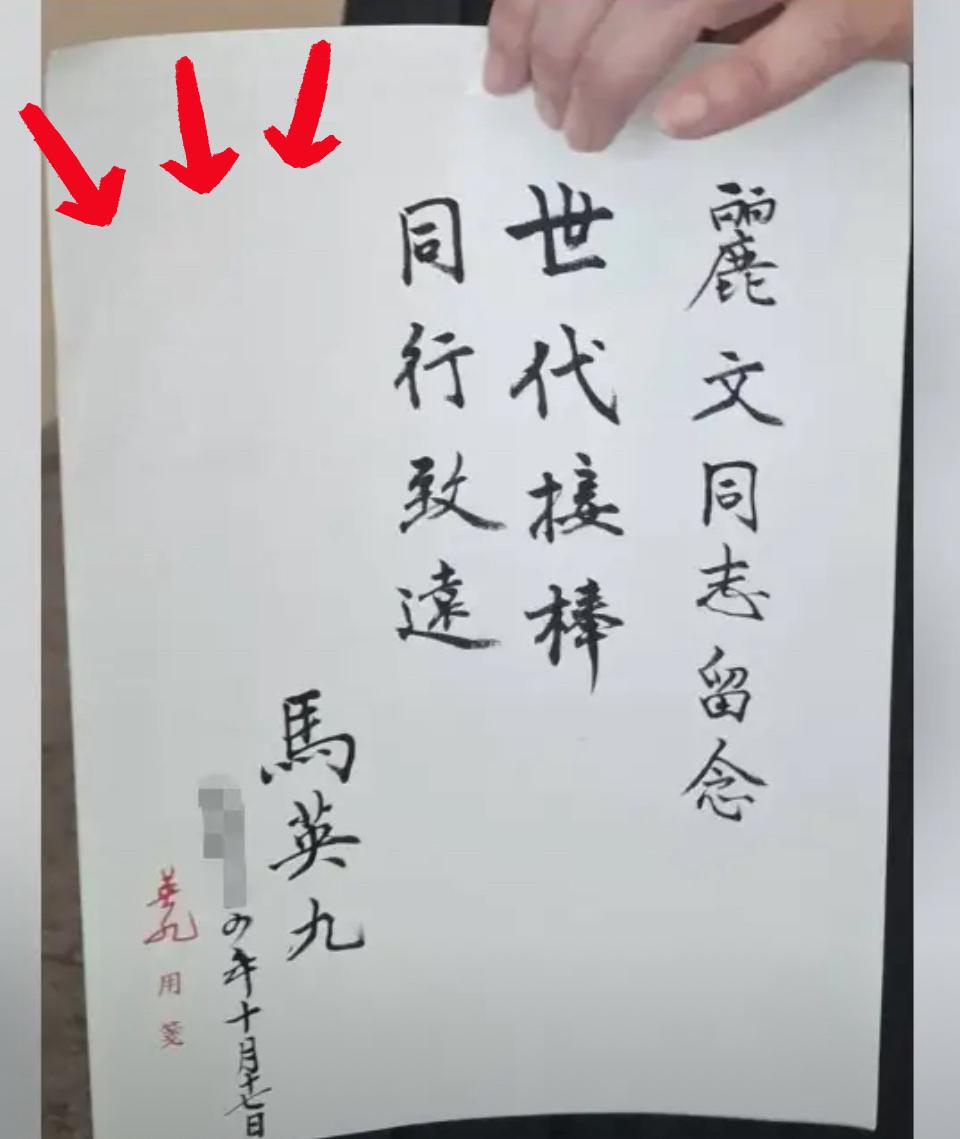 麗文同志留念
世代接棒
同行致遠
馬英九
四年十月十七日
英九用箋